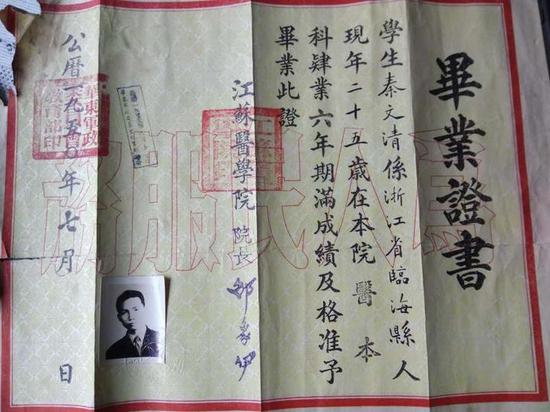 畢業證書
學生秦文清係浙江省臨海縣人
現年二十五歲在本院醫本
科肄業六年期滿成績及格准予
畢業此證
江蘇醫學院院長
公曆一九五〇年七月 日
為人民服務